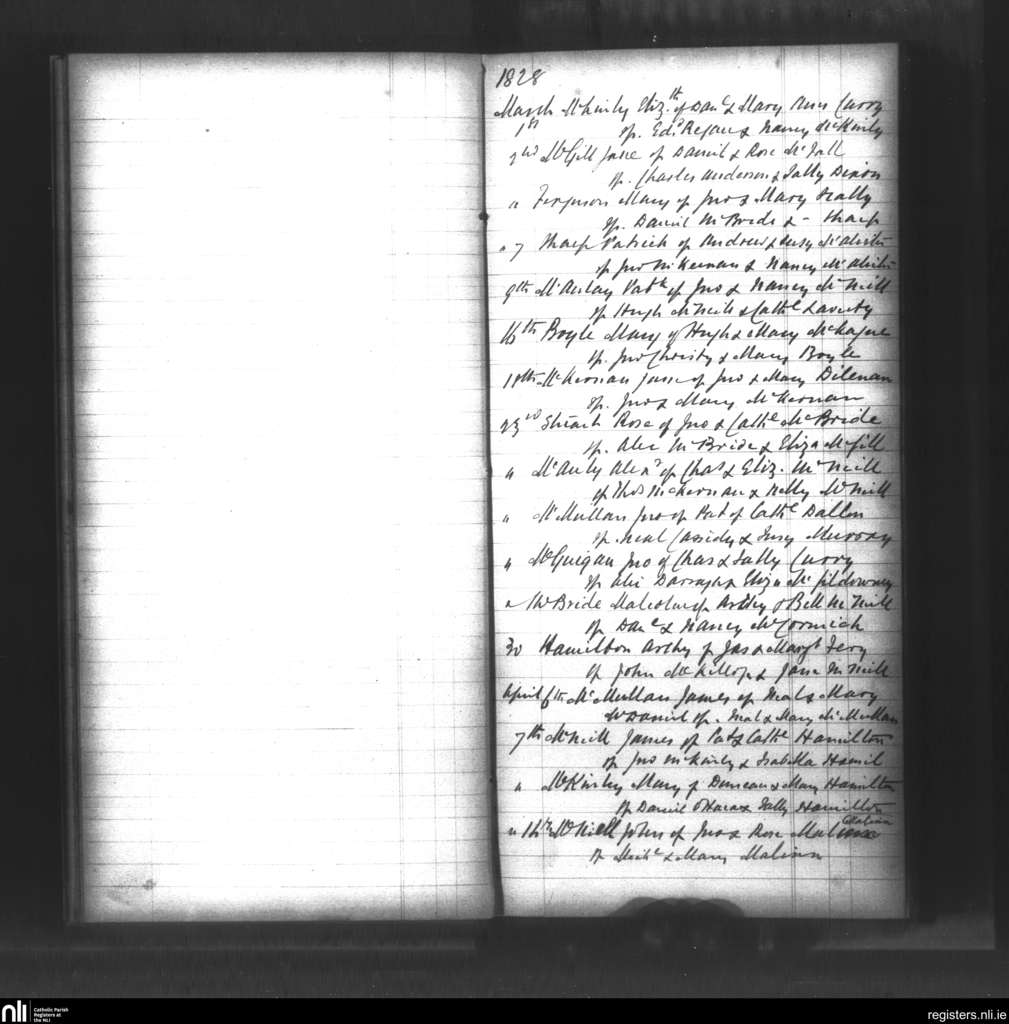 1828
March McKinly Eliz.th of Danl & Mary Ann Curry
1st sp. Edd Regan & Nancy McKinly
2nd McGill Jane of Daniel & Rose McFall
sp. Charles Anderson & Sally Dixon
" Ferguson Mary of Jno & Mary Scally
sp. Daniel McBride & - Sharp
" 7 Sharp Patrick of Andrew &
sp. Jno McKernan & Nancy
9th McAulay Patk of Jno & Nancy McNeill
sp. Hugh McNeill & Cathe Laverty
16th Boyle Mary of Hugh & Mary McKague
sp. Jno Christy & Mary Boyle
18th McKernan Jane of Jno & Mary Dilenan
sp. Jno & Mary McKernan
23rd Stuart Rose of Jno & Cathe McBride
sp. Alex McBride & Eliza McGill
" McAuly Alexr of Chas & Eliz. McNeill
sp Thos McKernan & Nelly McNeill
" McMullan Jno of Pat of Cathe Dallon
sp. Neal Cassidy & Murray
" McGuigan Jno of Chas & Sally Curry
sp Alex Darragh & Eliza McGildowney
" McBride Malcolm of Archy & Bell McNeill
sp Danl & Nancy McCormick
30 Hamilton Archy of Jas & Margt
sp John McKillop & Jane McNeill
April 6th McMullan James of Neal & Mary
McDaniel sp. Neal & Mary McMullan
7th McNeill James of Pat & Cathe Hamilton
sp Jno McKinly & Isabella Hamil
" McKinley Mary of Duncan & Mary Hamilton
sp Daniel O'Hara & Sally Hamilton
Malinn
" 14th McNeill John of Jno & Rose
sp Michl & Mary Malinn
nli
Catholic Parish
Registers at
the NLI
registers.nli.ie